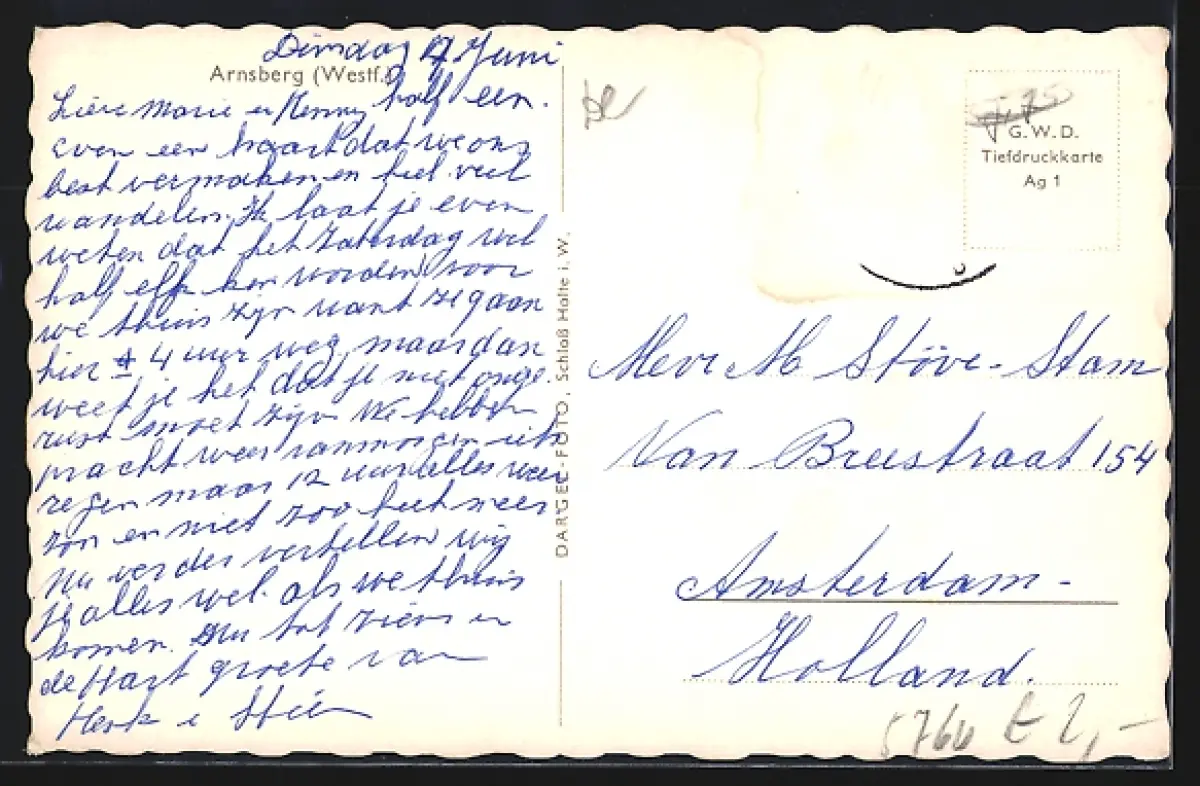 Dinsdag 17 Juni
Arnsberg (Westf.)
Lieve Marie en Henny half een.
Even een kaart dat we ons
best vermaken en heel veel
wandelen. Ik laat je even
weten dat het Zaterdag wel
half elf kan worden voor
we thuis zijn want ze gaan
hier ± 4 uur weg, maar dan
weet je het dat je niet onge
rust moet zijn We hebben
pracht weer vanmorgen iets
regen maar 12 uur alles weer
zon en niet zoo heet meer
Nu verder vertellen wij
je alles wel als we thuis
komen. Nu tot ziens en
de Hart groete van
Henk e Stien
DARGEE-FOTO, Schloß Holte i. W.
G.W.D.
Tiefdruckkarte
Ag 1
Mevr. M Stöve-Stam
Van Breestraat 154
Amsterdam-
Holland.
5760 € 2,-